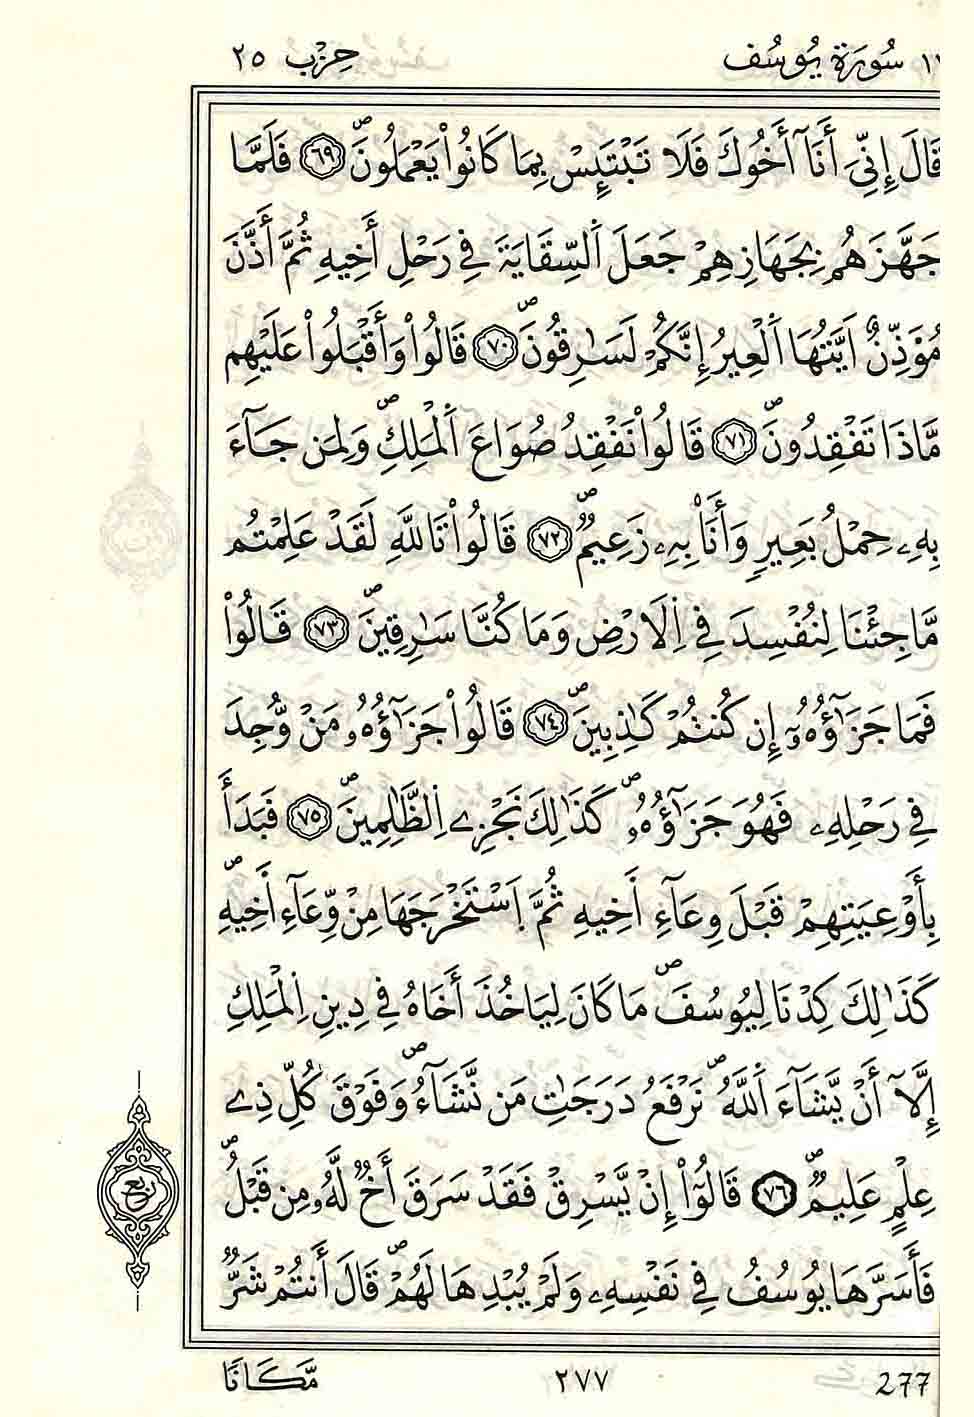 ١٢ سُورَةُ يُوسُف حِزْب ٢٥
قَالَ إِنِّيَ أَنَآ أَخُوكَ فَلَا تَبْتَئِسْ بِمَا كَانُواْ يَعْمَلُونَۖ ٦٩ فَلَمَّا
جَهَّزَهُم بِجَهَازِهِمْ جَعَلَ اَ۬لسِّقَايَةَ فِے رَحْلِ أَخِيهِ ثُمَّ أَذَّنَ
مُؤَذِّنٌ اَيَّتُهَا اَ۬لْعِيرُ إِنَّكُمْ لَسَٰرِقُونَۖ ٧٠ قَالُواْ وَأَقْبَلُواْ عَلَيْهِم
مَّاذَا تَفْقِدُونَۖ ٧١ قَالُواْ نَفْقِدُ صُوَاعَ اَ۬لْمَلِكِۖ وَلِمَن جَآءَ
بِهِۦ حِمْلُ بَعِيرٖ وَأَنَا۠ بِهِۦ زَعِيمٞۖ ٧٢ قَالُواْ تَاللَّهِ لَقَدْ عَلِمْتُم
مَّا جِئْنَا لِنُفْسِدَ فِے اِ۬لَارْضِ وَمَا كُنَّا سَٰرِقِينَۖ ٧٣ قَالُواْ
فَمَا جَزَٰٓؤُهُۥٓ إِن كُنتُمْ كَٰذِبِينَۖ ٧٤ قَالُواْ جَزَٰٓؤُهُۥ مَنْ وُّجِدَ
فِے رَحْلِهِۦ فَهُوَ جَزَٰٓؤُهُۥۖ كَذَٰلِكَ نَجْزِے اِ۬لظَّٰلِمِينَۖ ٧٥ فَبَدَأَ
بِأَوْعِيَتِهِمْ قَبْلَ وِعَآءِ اَخِيهِ ثُمَّ اَ۪سْتَخْرَجَهَا مِنْ وِّعَآءِ اَخِيهِۖ
كَذَٰلِكَ كِدْنَا لِيُوسُفَۖ مَا كَانَ لِيَاخُذَ أَخَاهُ فِے دِينِ اِ۬لْمَلِكِ
إِلَّآ أَنْ يَّشَآءَ اَ۬للَّهُۖ نَرْفَعُ دَرَجَٰتِ مَن نَّشَآءُۖ وَفَوْقَ كُلِّ ذِے
عِلْمٍ عَلِيمٞۖ ٧٦ قَالُوٓاْ إِنْ يَّسْرِقْ فَقَدْ سَرَقَ أَخٞ لَّهُۥ مِن قَبْلُۖ
فَأَسَرَّهَا يُوسُفُ فِے نَفْسِهِۦ وَلَمْ يُبْدِهَا لَهُمْۖ قَالَ أَنتُمْ شَرّٞ
ربع
مَّكَانًا ٢٧٧ 277